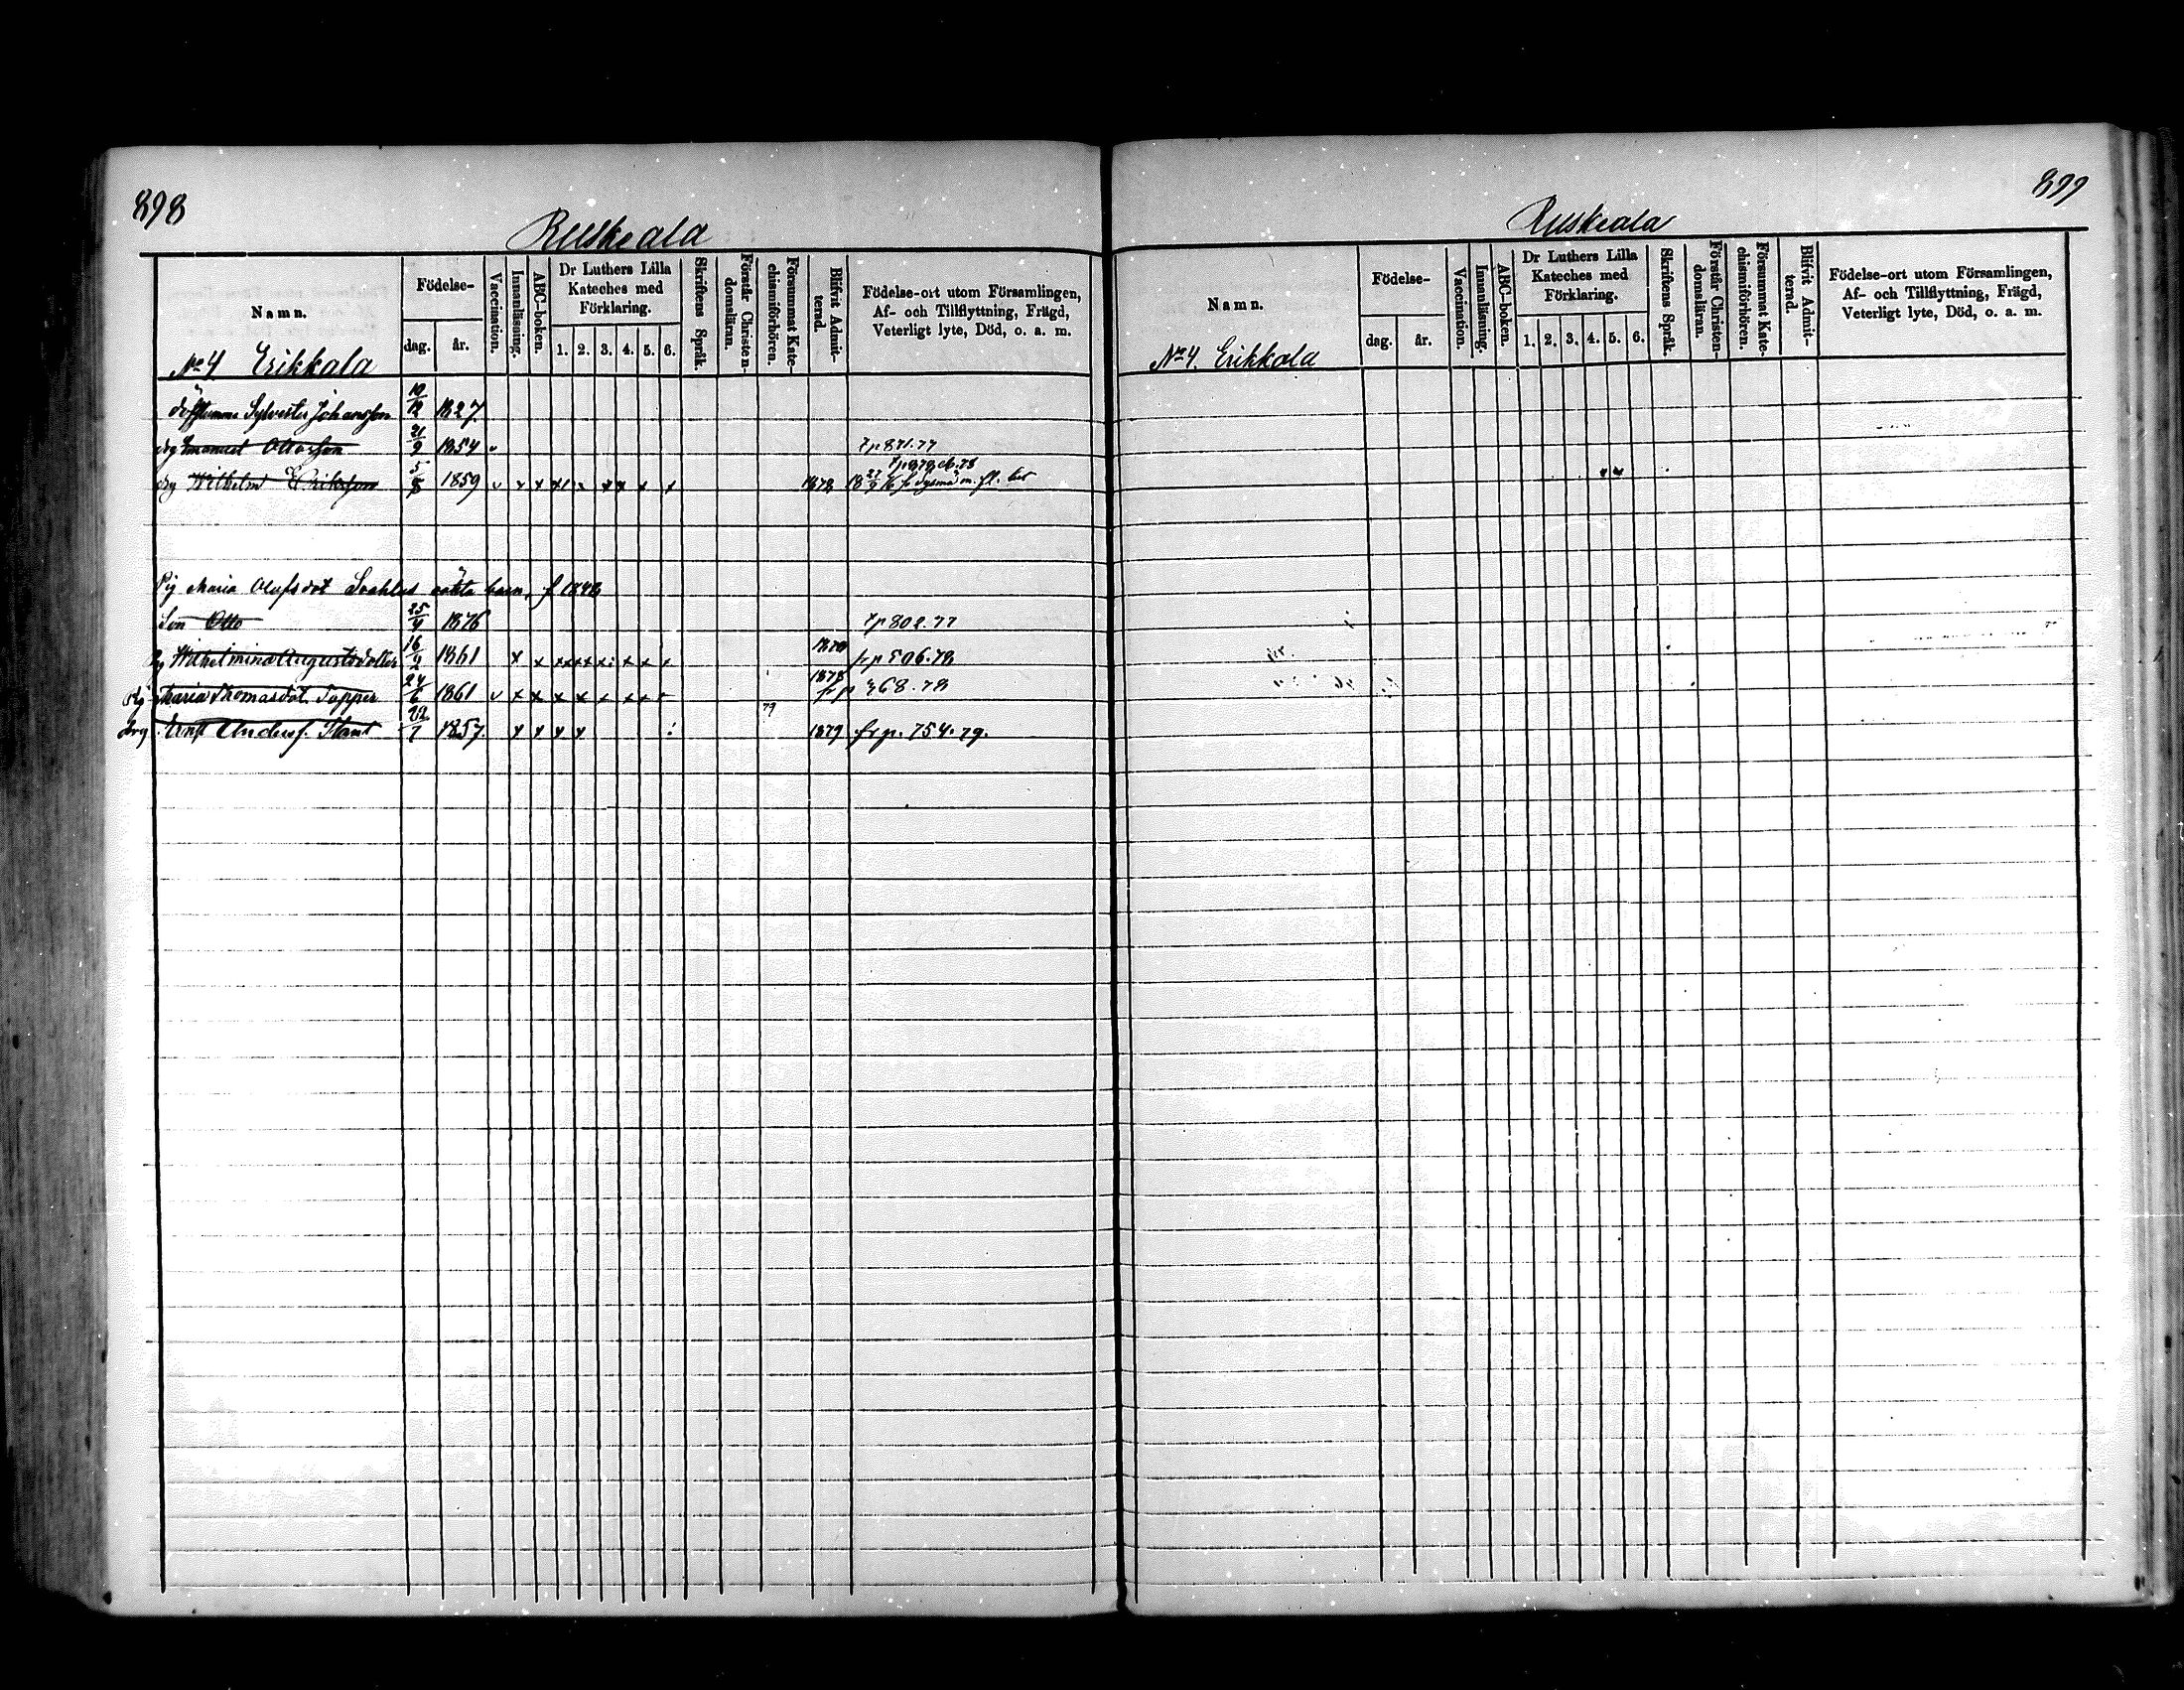 898
Ruskeala
Namn.
Födelse-
dag.
år.
Vaccination.
Innanläsning.
ABC-boken.
Dr Luthers Lilla
Kateches med
Förklaring.
1. 2. 3. 4. 5. 6.
Skriftens Språk.
Förstår Christen-
domsläran.
Försummat Kate-
chismiförhören.
Blifvit Admit-
terad.
Födelse-ort utom Församlingen,
Af- och Tillflyttning, Frägd,
Veterligt lyte, Död, o. a. m.
No 4 Erikkala
Sylvester Johansson 10/12 1827
drg Emanuel Ottosson 21/9 1854 v 7p871.77
7p979.78
drg Wilhelm Eriksson 5/8 1859 v x x x x x x x x 1878 18 27/9 76 fr Sysmä m. fl. bet
Pig Maria Olufsdot oäkta barn, f 1848
Son Otto 25/4 1876 7p802.77
Pig Wilhelmina Augustsdotter 16/2 1861 x x x x x x x x x 1878 frp506.78
Pig Maria Thomasdot. Tapper 24/6 1861 v x x x x x x x x 1878 frp 368.78
79
drg Ernst Anders. 1857 x x x x 1879 frp. 754.79.
899
Ruskeala
Namn.
Födelse-
dag.
år.
Vaccination.
Innanläsning.
ABC-boken.
Dr Luthers Lilla
Kateches med
Förklaring.
1. 2. 3. 4. 5. 6.
Skriftens Språk.
Förstår Christen-
domsläran.
Försummat Kate-
chismiförhören.
Blifvit Admit-
terad.
Födelse-ort utom Församlingen,
Af- och Tillflyttning, Frägd,
Veterligt lyte, Död, o. a. m.
No 4. Erikkala